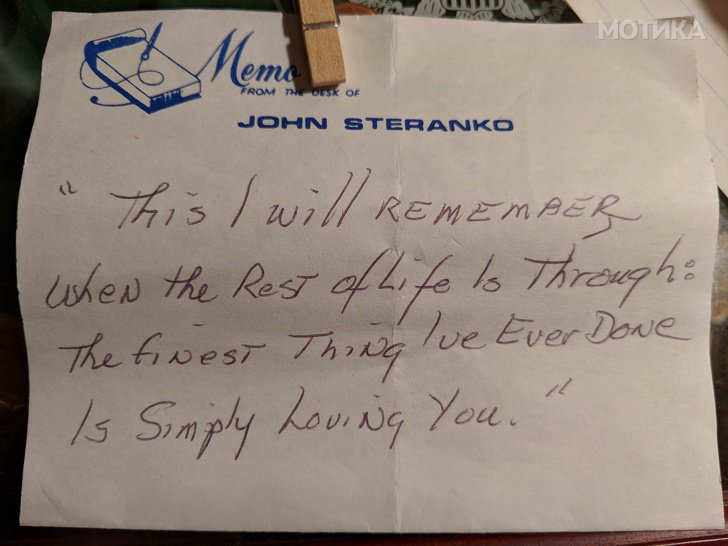 МОТИКА
Memo
FROM THE DESK OF
JOHN STERANKO
"This I will REMEMBER
when the Rest of Life Is Through:
The finest Thing I've Ever Done
Is Simply Loving You."